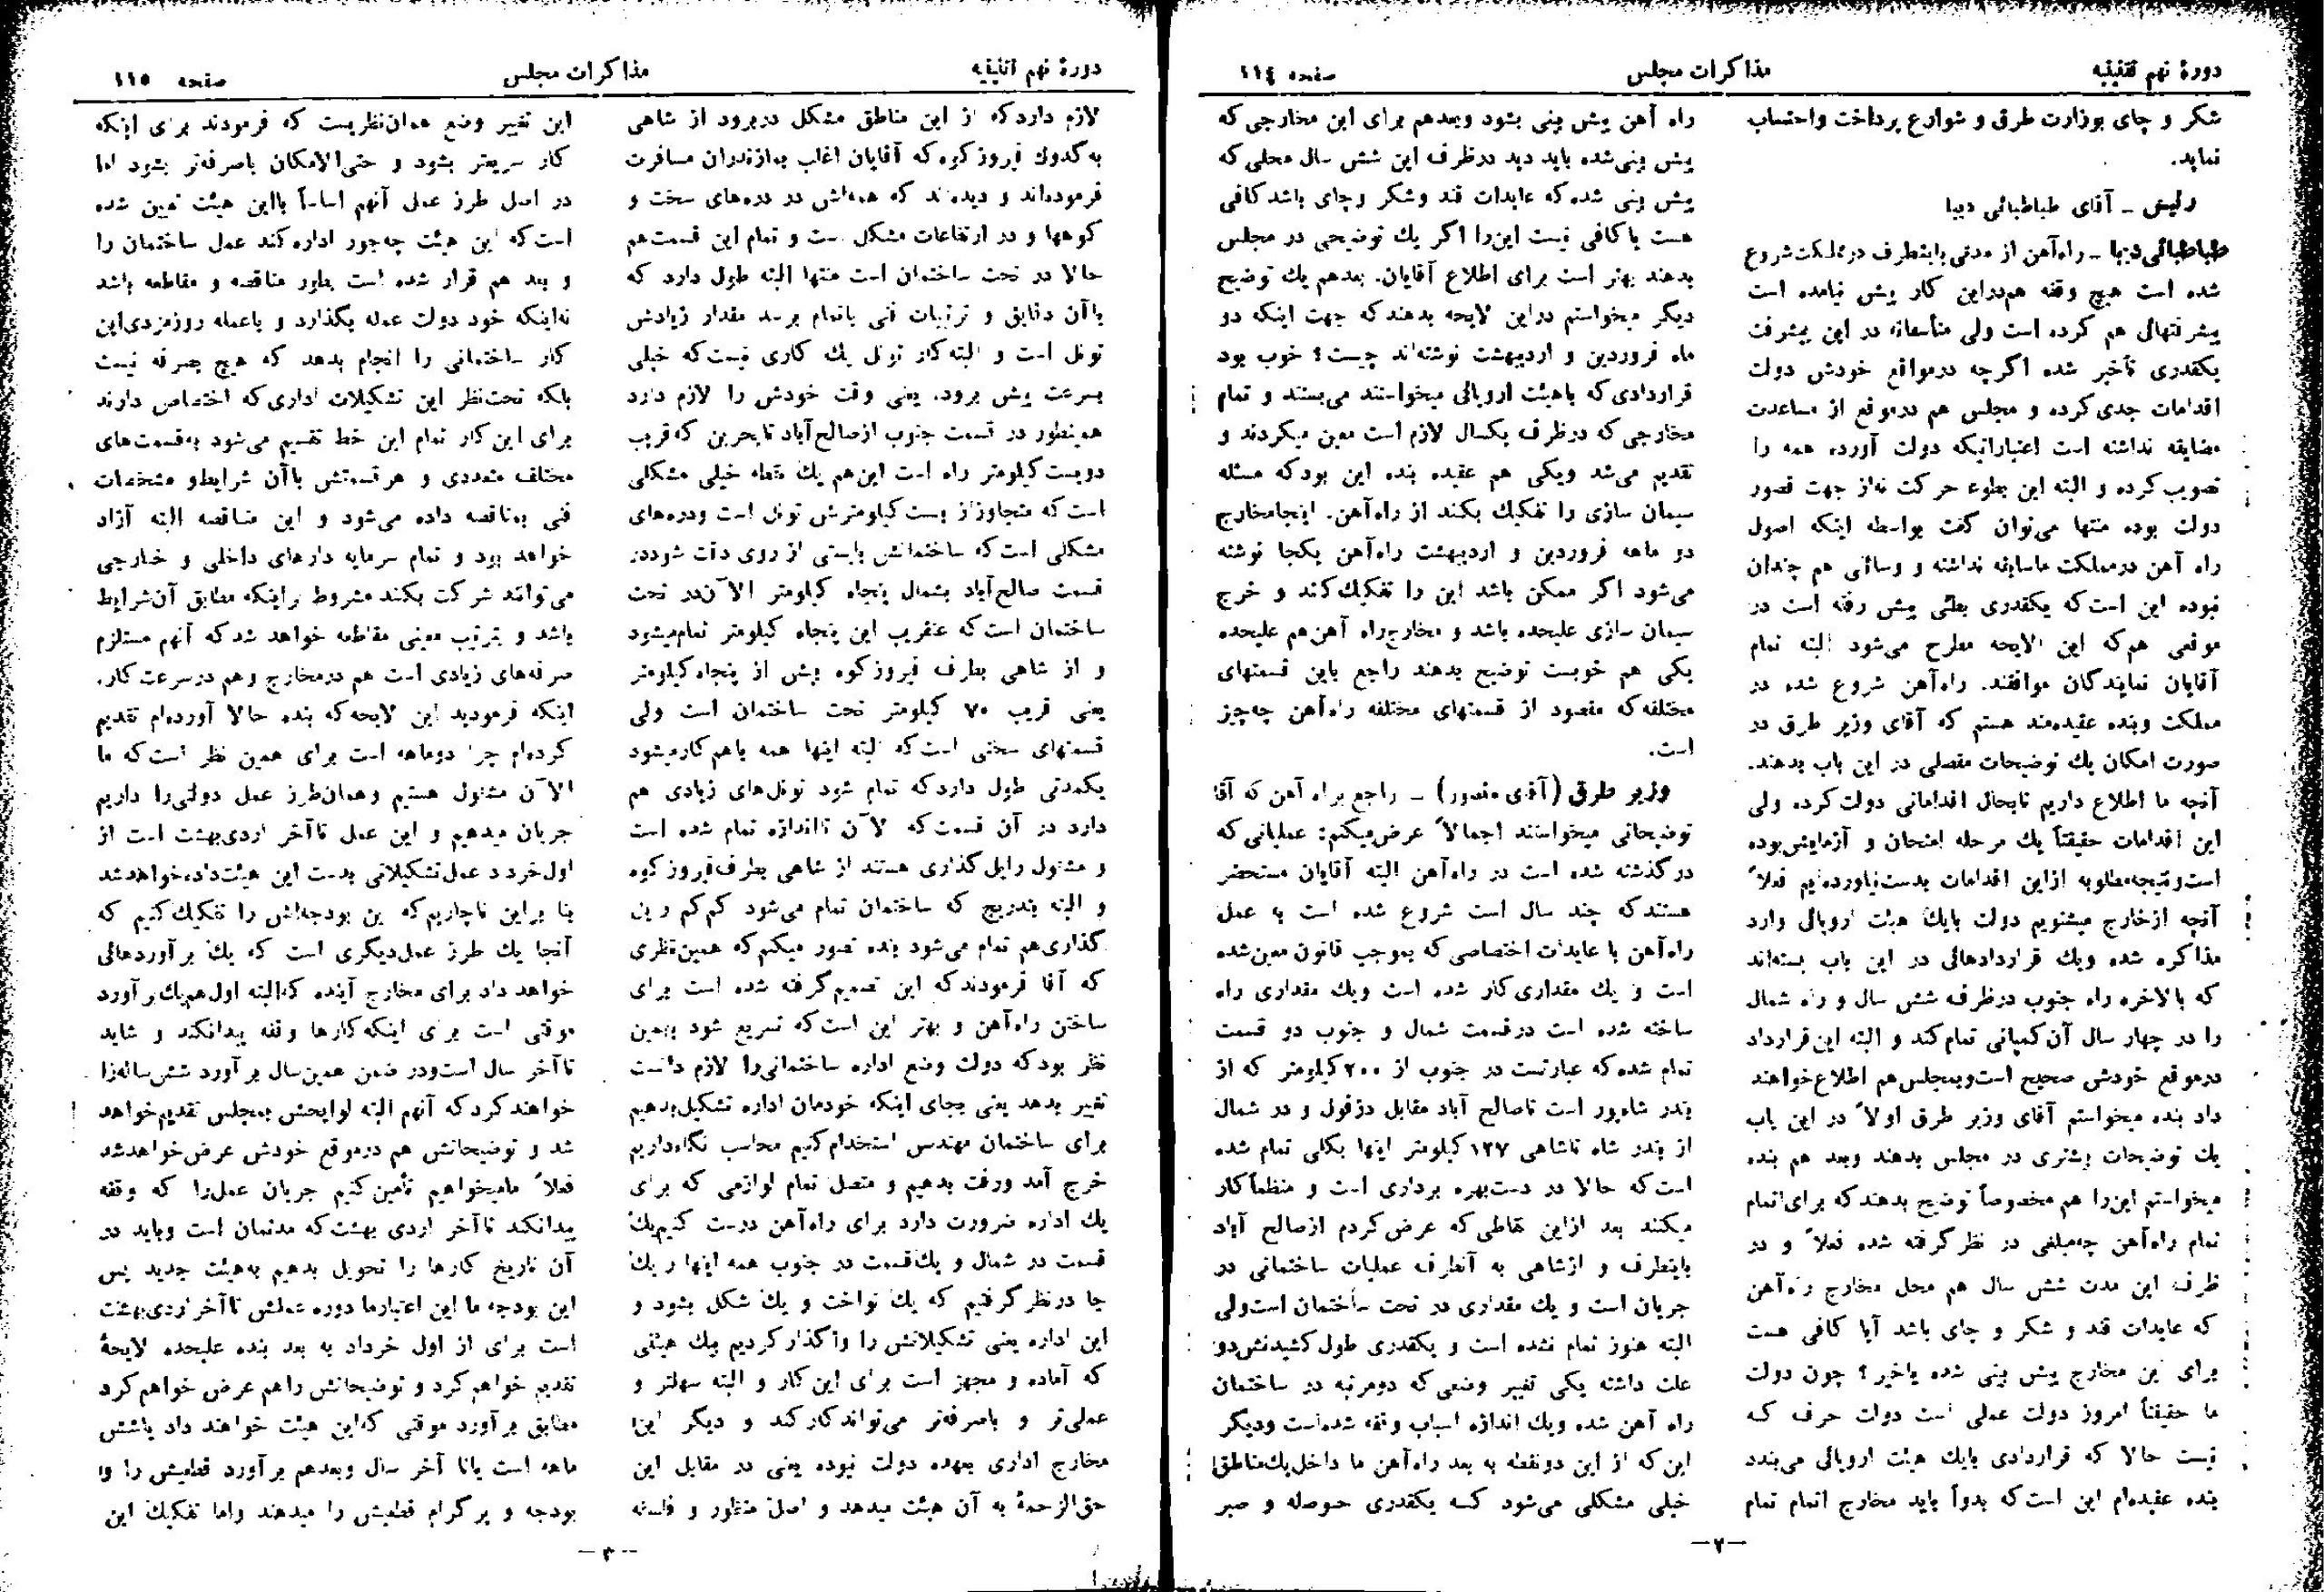 دورهٔ نهم تقنینیه
مذاکرات مجلس
صفحه ۱۱٤
شکر و چای بوزارت طرق و شوارع پرداخت واحتساب
نماید.
رئیس ـ آقای طباطبائی دیبا
طباطبائی دیبا ـ راه‌آهن از مدتی باینطرف در مملکت شروع
شده است هیچ وقفه هم در این کار پیش نیامده است
پیشرفتهائی هم کرده است ولی متأسفانه در این پیشرفت
یکقدری تأخیر شده اگرچه در مواقع خودش دولت
اقدامات جدی کرده و مجلس هم در موقع از مساعدت
مضایقه نداشته است اعتباراتیکه دولت آورده همه را
تصویب کرده و البته این بطوء حرکت نه از جهت قصور
دولت بوده منتها می‌توان گفت بواسطه اینکه اصول
راه آهن در مملکت ما سابقه نداشته و وسائلی هم چندان
نبوده این است که یکقدری بطئی پیش رفته است در
موقعی هم که این لایحه مطرح می‌شود البته تمام
آقایان نمایندگان موافقند. راه‌آهن شروع شده در
مملکت وبنده عقیده‌مند هستم که آقای وزیر طرق در
صورت امکان یك توضیحات مفصلی در این باب بدهند.
آنچه ما اطلاع داریم تابحال اقداماتی دولت کرده ولی
این اقدامات حقیقتاً یك مرحله امتحان و آزمایش بوده
است و نتیجه مطلوبه از این اقدامات بدست نیاورده‌ایم فعلاً
آنچه از خارج میشنویم دولت بایك هیئت اروپائی وارد
مذاکره شده ویك قراردادهائی در این باب بسته‌اند
که بالاخره راه جنوب در ظرف شش سال و راه شمال
را در چهار سال آن کمپانی تمام کند و البته این قرارداد
در موقع خودش صحیح است و بمجلس هم اطلاع خواهند
داد بنده میخواستم آقای وزیر طرق اولاً در این باب
یك توضیحات بیشتری در مجلس بدهند وبعد هم بنده
میخواستم این را هم مخصوصاً توضیح بدهند که برای اتمام
تمام راه‌آهن چه مبلغی در نظر گرفته شده فعلاً و در
ظرف این مدت شش سال هم محل مخارج راه‌آهن
که عایدات قند و شکر و چای باشد آیا کافی هست
برای این مخارج پیش بینی شده یاخیر؟ چون دولت
ما حقیقتاً امروز دولت عملی است دولت حرف که
نیست حالا که قراردادی بایك هیئت اروپائی می‌بندد
بنده عقیده‌ام این است که بدواً باید مخارج اتمام تمام
راه آهن پیش بینی بشود وبعدهم برای این مخارجی که
پیش بینی شده باید دید در ظرف این شش سال محلی که
پیش بینی شده که عایدات قند وشکر وچای باشد کافی
هست یا کافی نیست این را اگر یك توضیحی در مجلس
بدهند بهتر است برای اطلاع آقایان. بعدهم یك توضیح
دیگر میخواستم در این لایحه بدهند که جهت اینکه دو
ماه فروردین و اردیبهشت نوشته‌اند چیست؟ خوب بود
قراردادی که باهیئت اروپائی میخواستند می‌بستند و تمام
مخارجی که در ظرف یکسال لازم است معین میکردند و
تقدیم می‌شد ویکی هم عقیده بنده این بود که مسئله
سیمان سازی را تفکیك بکند از راه‌آهن. اینجا مخارج
دو ماهه فروردین و اردیبهشت راه‌آهن یکجا نوشته
می‌شود اگر ممکن باشد این را تفکیك کند و خرج
سیمان سازی علیحده باشد و مخارج راه آهن هم علیحده
یکی هم خوبست توضیح بدهند راجع باین قسمتهای
مختلفه که مقصود از قسمتهای مختلفه راه‌آهن چه چیز
است.
وزیر طرق (آقای منصور) ـ راجع براه آهن که آقا
توضیحاتی میخواستند اجمالاً عرض میکنم: عملیاتی که
در گذشته شده است در راه‌آهن البته آقایان مستحضر
هستند که چند سال است شروع شده است به عمل
راه‌آهن با عایدات اختصاصی که بموجب قانون معین شده
است و یك مقداری کار شده است ویك مقداری راه
ساخته شده است در قسمت شمال و جنوب دو قسمت
تمام شده که عبارتست در جنوب از ۲۰۰ کیلومتر که از
بندر شاهپور است تا صالح آباد مقابل دزفول و در شمال
از بندر شاه تا شاهی ۱۲۷ کیلومتر اینها بکلی تمام شده
است که حالا در دست بهره برداری است و منظماً کار
میکنند بعد از این نقاطی که عرض کردم از صالح آباد
باینطرف و از شاهی به آنطرف عملیات ساختمانی در
جریان است و یك مقداری در تحت ساختمان است ولی
البته هنوز تمام نشده است و یکقدری طول کشیدنش دو
علت داشته یکی تغییر وضعی که دو مرتبه در ساختمان
راه آهن شده ویك اندازه اسباب وقفه شده است ودیگر
این که از این دو نقطه به بعد راه‌آهن ما داخل یك مناطق
خیلی مشکلی می‌شود که یکقدری حوصله و صبر
ـ۲ـ
دورهٔ نهم تقنینیه
مذاکرات مجلس
صفحه ۱۱۵
لازم دارد که از این مناطق مشکل در برود از شاهی
به گدوك فیروزکوه که آقایان اغلب بمازندران مسافرت
فرموده‌اند و دیده‌اند که همه‌اش در دره‌های سخت و
کوهها و در ارتفاعات مشکل است و تمام این قسمت هم
حالا در تحت ساختمان است منتها البته طول دارد که
با آن دقایق و ترتیبات فنی باتمام برسد مقدار زیادش
تونل است و البته کار تونل یك کاری نیست که خیلی
بسرعت پیش برود. یعنی وقت خودش را لازم دارد
همینطور در قسمت جنوب از صالح آباد تا بحرین که قریب
دویست کیلومتر راه است این هم یك نقطه خیلی مشکلی
است که متجاوز از بیست کیلومترش تونل است ودره‌های
مشکلی است که ساختمانش بایستی از روی دقت شود در
قسمت صالح آباد بشمال پنجاه کیلومتر الآن در تحت
ساختمان است که عنقریب این پنجاه کیلومتر تمام میشود
و از شاهی بطرف فیروزکوه بیش از پنجاه کیلومتر
یعنی قریب ۷۰ کیلومتر تحت ساختمان است ولی
قسمتهای سختی است که البته اینها همه باهم کار میشود
یکمدتی طول دارد که تمام شود تونل‌های زیادی هم
دارد در آن قسمت که الآن تا اندازه تمام شده است
و مشغول رایل گذاری هستند از شاهی بطرف فیروزکوه
و البته بتدریج که ساختمان تمام می‌شود کم کم رایل
گذاری هم تمام می‌شود بنده تصور میکنم که همین نظری
که آقا فرمودند که این تصمیم گرفته شده است برای
ساختن راه‌آهن و بهتر این است که تسریع شود بهمین
نظر بود که دولت وضع اداره ساختمانی را لازم دانست
تغییر بدهد یعنی بجای اینکه خودمان اداره تشکیل بدهیم
برای ساختمان مهندس استخدام کنیم محاسب نگاه داریم
خرج آمد ورفت بدهیم و متصل تمام لوازمی که برای
یك اداره ضرورت دارد برای راه‌آهن درست کنیم یك
قسمت در شمال و یك قسمت در جنوب همه اینها ریك
جا در نظر گرفتیم که یك نواخت و یك شکل بشود و
این اداره یعنی تشکیلاتش را واگذار کردیم بیك هیئتی
که آماده و مجهز است برای این کار و البته سهلتر و
عملی‌تر و باصرفه‌تر می‌تواند کار کند و دیگر این
مخارج اداری بعهده دولت نبوده یعنی در مقابل این
حق‌الزحمهٔ به آن هیئت میدهد و اصل منظور و فلسفه
این تغییر وضع همان نظریست که فرمودند برای اینکه
کار سریعتر بشود و حتی‌الامکان باصرفه‌تر بشود اما
در اصل طرز عملی آنهم اساساً بااین هیئت تعیین شده
است که این هیئت چه‌جور اداره کند عمل ساختمان را
و بعد هم قرار شده است بطور مناقصه و مقاطعه باشد
نه‌اینکه خود دولت عمله بگذارد و باعمله روزمزدی این
کار ساختمانی را انجام بدهد که هیچ بصرفه نیست
بلکه تحت‌نظر این تشکیلات اداری که اختصاص دارند
برای این کار تمام این خط تقسیم می‌شود به قسمت‌های
مختلف متعددی و هر قسمتش با آن شرایط و مشخصات
فنی بمناقصه داده می‌شود و این مناقصه البته آزاد
خواهد بود و تمام سرمایه دارهای داخلی و خارجی
می‌توانند شرکت بکنند مشروط براینکه مطابق آن شرایط
باشد و بترتیب معینی مقاطعه خواهد شد که آنهم مستلزم
صرفه‌های زیادی است هم در مخارج وهم در سرعت کار.
اینکه فرمودید این لایحه که بنده حالا آورده‌ام تقدیم
کرده‌ام چرا دوماهه است برای همین نظر است که ما
الآن مشغول هستیم وهمان طرز عمل دولتی را داریم
جریان میدهیم و این عمل تا آخر اردی‌بهشت است از
اول خرداد عمل تشکیلاتی بدست این هیئت داده خواهد شد
بنا براین ناچاریم که این بودجه‌اش را تفکیك کنیم که
آنجا یك طرز عمل دیگری است که یك برآوردهائی
خواهد داد برای مخارج آینده که البته اول هم یك برآورد
موقتی است برای اینکه کارها وقفه پیدا نکند و شاید
تا آخر سال است ودر ضمن همین سال برآورد شش ساله را
خواهند کرد که آنهم البته لوایحش بمجلس تقدیم خواهد
شد و توضیحاتش هم در موقع خودش عرض خواهد شد
فعلاً ما میخواهیم تأمین کنیم جریان عمل را که وقفه
پیدا نکند تا آخر اردی بهشت که مدتمان است وباید در
آن تاریخ کارها را تحویل بدهیم به هیئت جدید پس
این بودجه ما این اعتبار ما دوره عملش تا آخر اردی‌بهشت
است برای از اول خرداد به بعد بنده علیحده لایحهٔ
تقدیم خواهم کرد و توضیحاتش را هم عرض خواهم کرد
مطابق برآورد موقتی که این هیئت خواهند داد یا شش
ماهه است یا تا آخر سال وبعدهم برآورد قطعیش را و
بودجه و پرگرام قطعیش را میدهند واما تفکیك این
ـ۳ـ